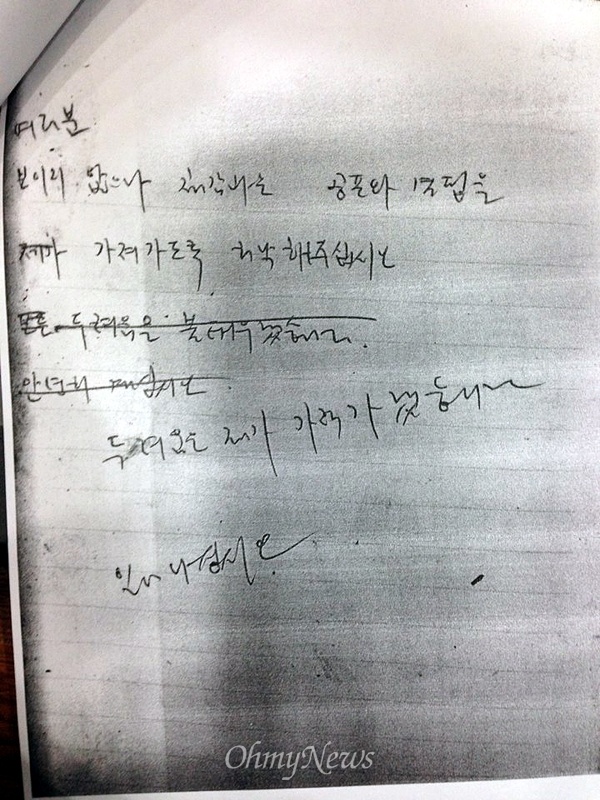 여러분
보이지 않으나 체감하는 공포와 결핍을
제가 가져가도록 허락해주십시오
모든 두려움을 불태우겠습니다.
안녕히 계십시오
두려움은 제가 가져가겠습니다
일어나십시오.
OhmyNews